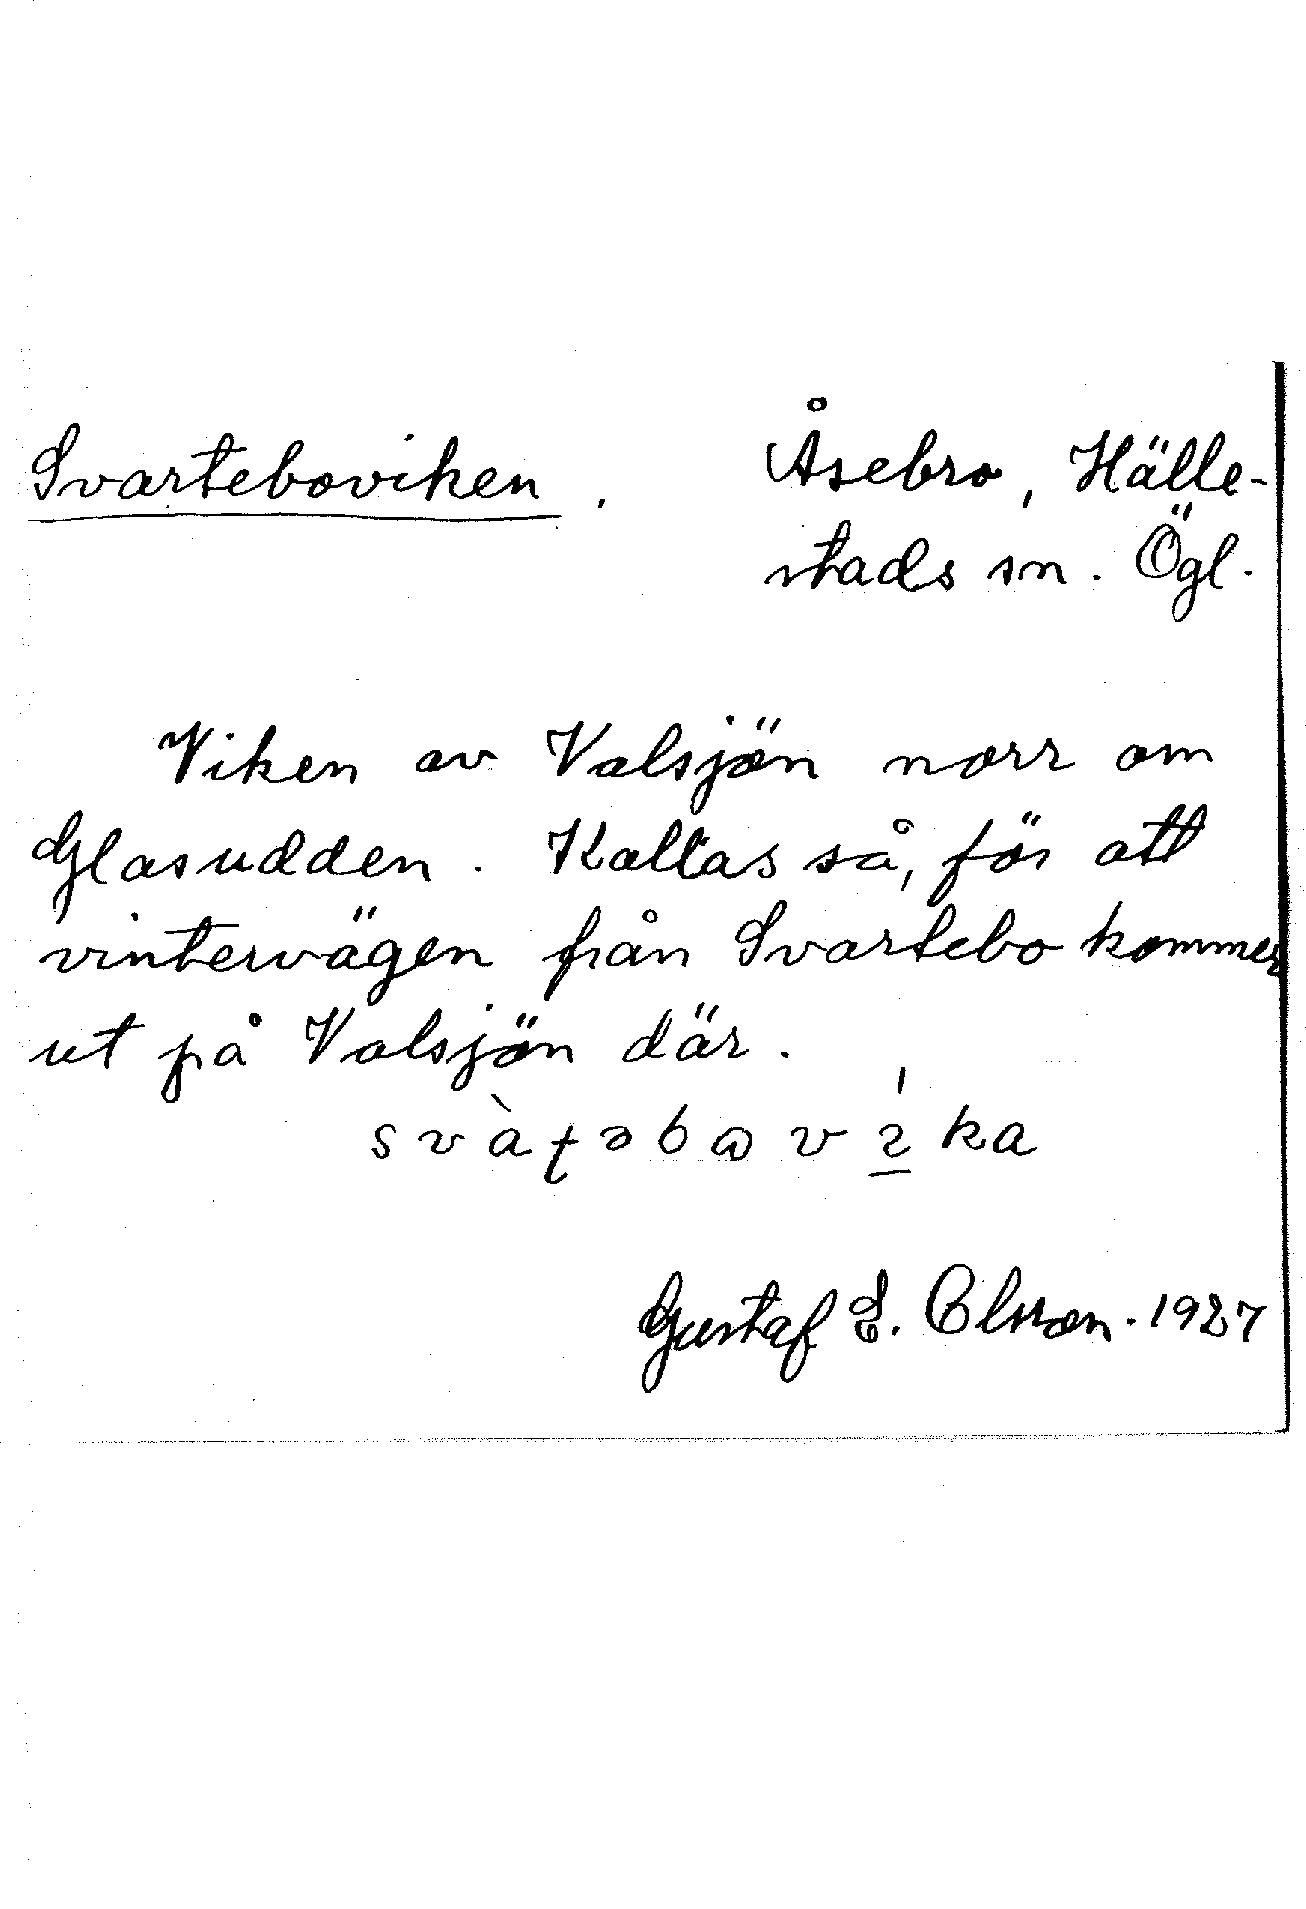 Svarteboviken. Åsebro, Hälle-
stads sn. Ögl.
Viken av Valsjön norr om
Glasudden. Kallas så, för att
vintervägen från Svartebo kommer
ut på Valsjön där.
svàʈəbɷví̱ka
Gustaf E. Olsson. 1927